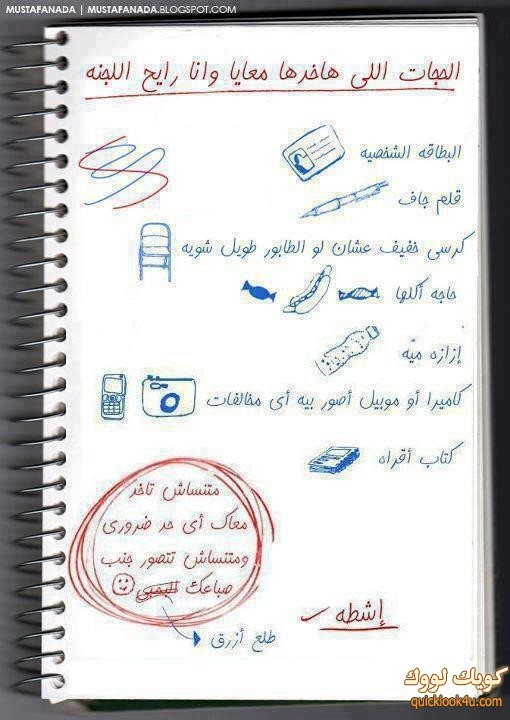 MUSTAFANADA | MUSTAFANADA.BLOGSPOT.COM
الحجات اللى هاخدها معايا وانا رايح اللجنه
البطاقه الشخصيه
قلم جاف
كرسى خفيف عشان لو الطابور طويل شويه
حاجه أكلها
إزازه ميّه
كاميرا أو موبيل أصور بيه أى مخالفات
كتاب أقراه
متنساش تاخد
معاك أى حد ضرورى
ومتنساش تتصور جنب
صباعك البمبى
طلع أزرق
إشطه
كويك لووك
quicklook4u.com